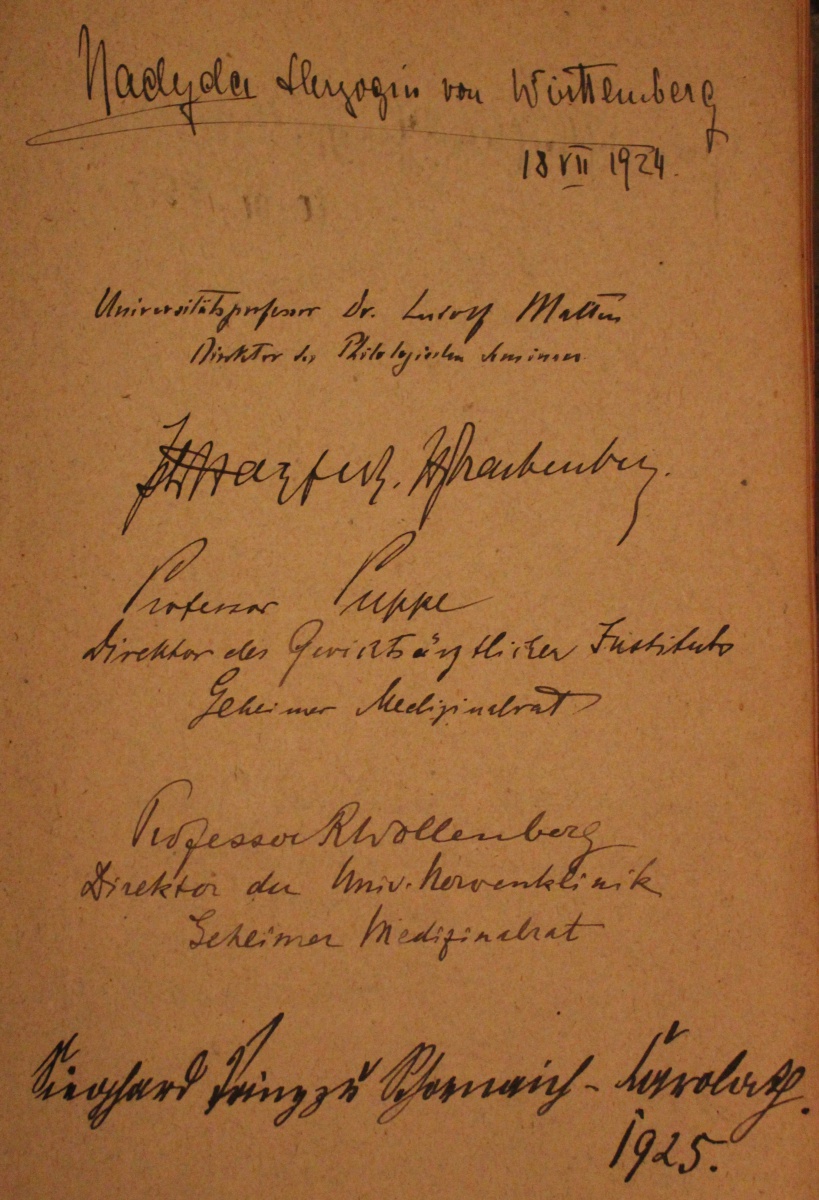 Nadejda Herzogin von Württemberg
18 VII 1924.
Universitätsprofessor Dr. Ludolf Malten
Direktor des Philologischen Seminars.
Professor Puppe
Direktor des Gerichtsärztlichen Instituts
Geheimer Medizinalrat
Professor RWollenberg
Direktor der Univ. Nervenklinik
Geheimer Medizinalrat
Sieghard Prinz zu Schoenaich-Carolath.
1925.